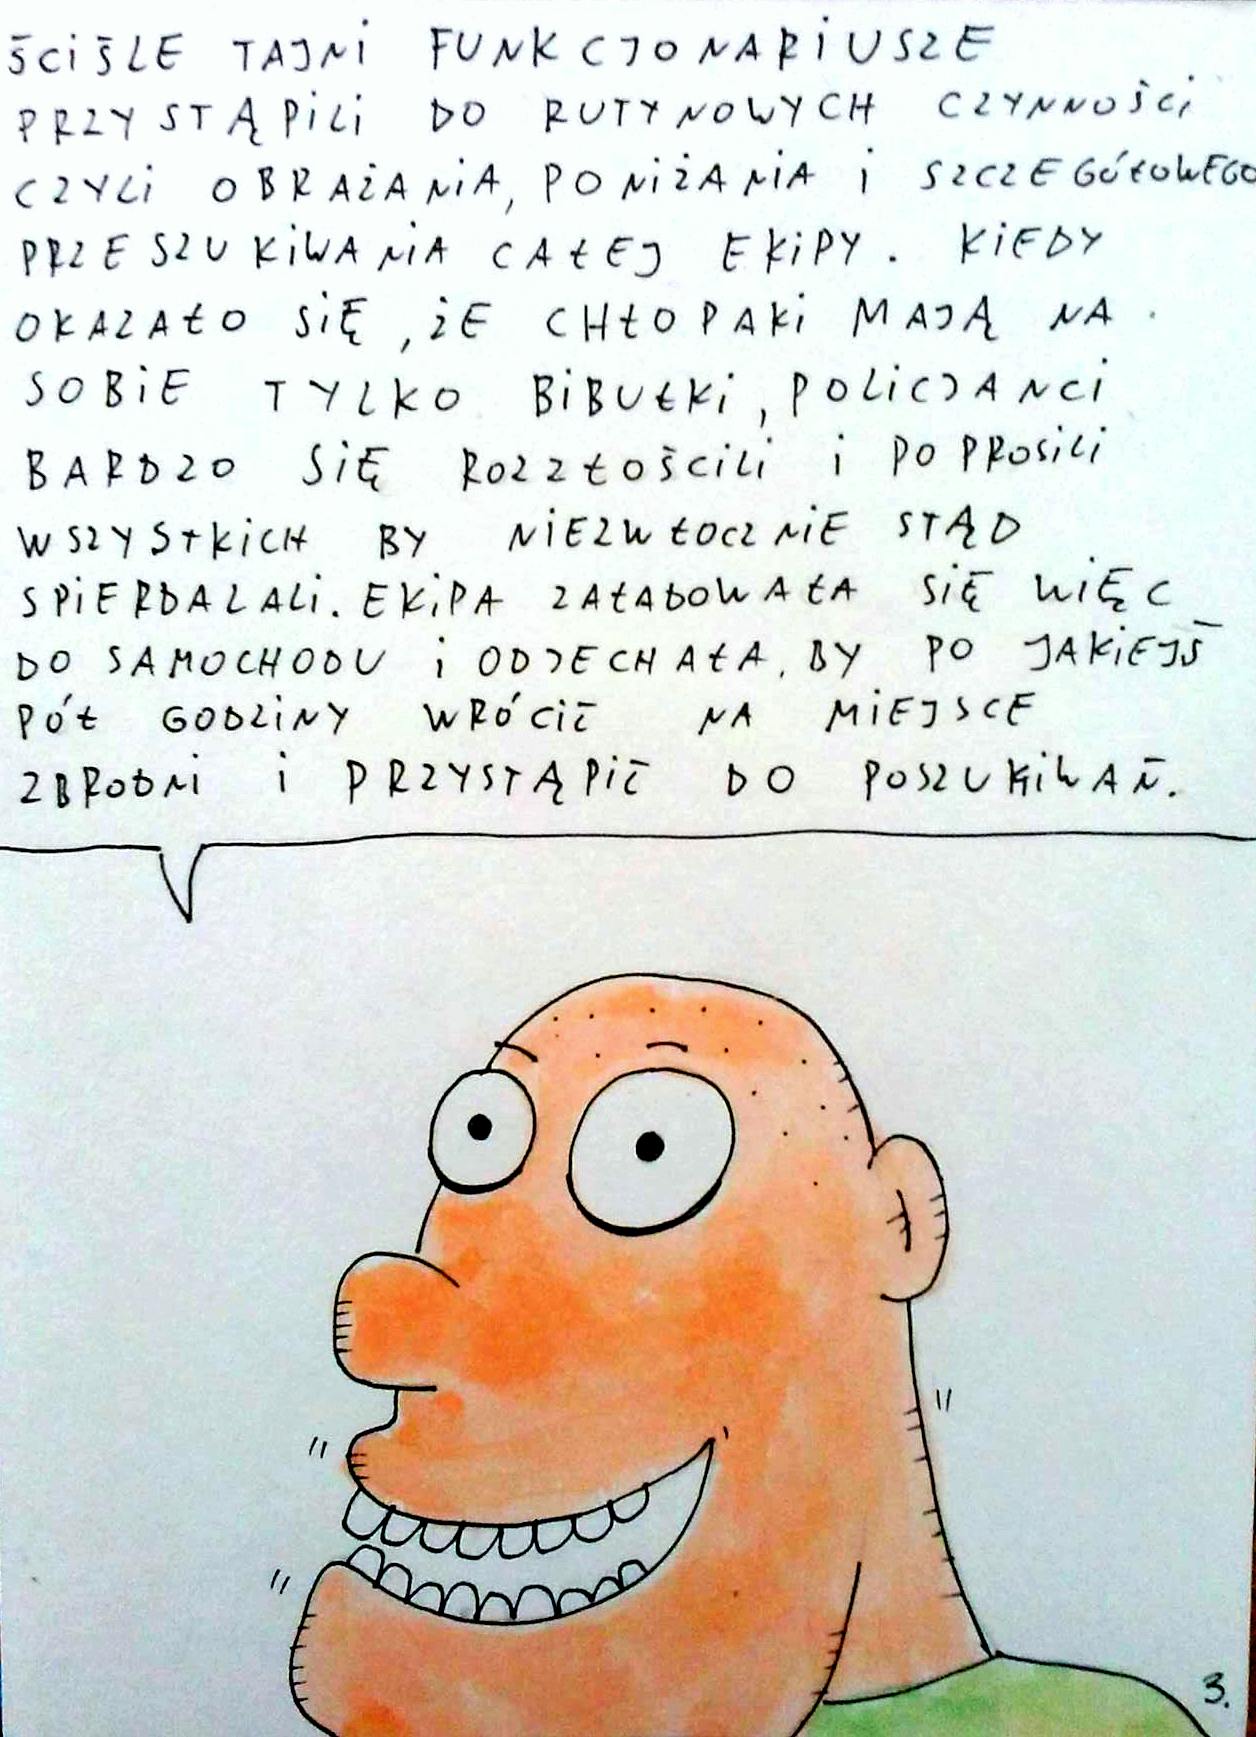 ŚCIŚLE TAJNI FUNKCJONARIUSZE
PRZYSTĄPILI DO RUTYNOWYCH CZYNNOŚCI
CZYLI OBRAŻANIA, PONIŻANIA I SZCZEGÓŁOWEGO
PRZESZUKIWANIA CAŁEJ EKIPY. KIEDY
OKAZAŁO SIĘ, ŻE CHŁOPAKI MAJĄ NA
SOBIE TYLKO BIBUŁKI, POLICJANCI
BARDZO SIĘ ROZZŁOŚCILI I POPROSILI
WSZYSTKICH BY NIEZWŁOCZNIE STĄD
SPIERDALALI. EKIPA ZAŁADOWAŁA SIĘ WIĘC
DO SAMOCHODU I ODJECHAŁA, BY PO JAKIEJŚ
PÓŁ GODZINY WRÓCIĆ NA MIEJSCE
ZBRODNI I PRZYSTĄPIĆ DO POSZUKIWAŃ.
3.